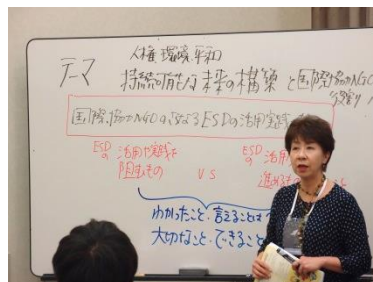 人権 環境 平和
テーマ 持続可能な未来の構築と国際協力NGO
役割
国際協力NGOのさらなるESDの活用実践
ESDの活用や実践を阻むもの VS ESDの活用 進める
わかったこと・言えること
大切なこと・できること